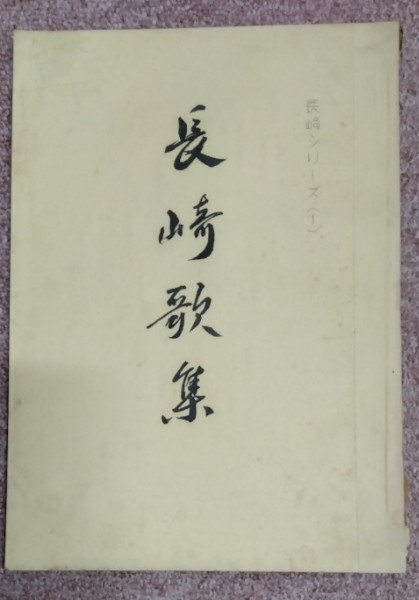 長崎シリーズ(1)
長崎歌集